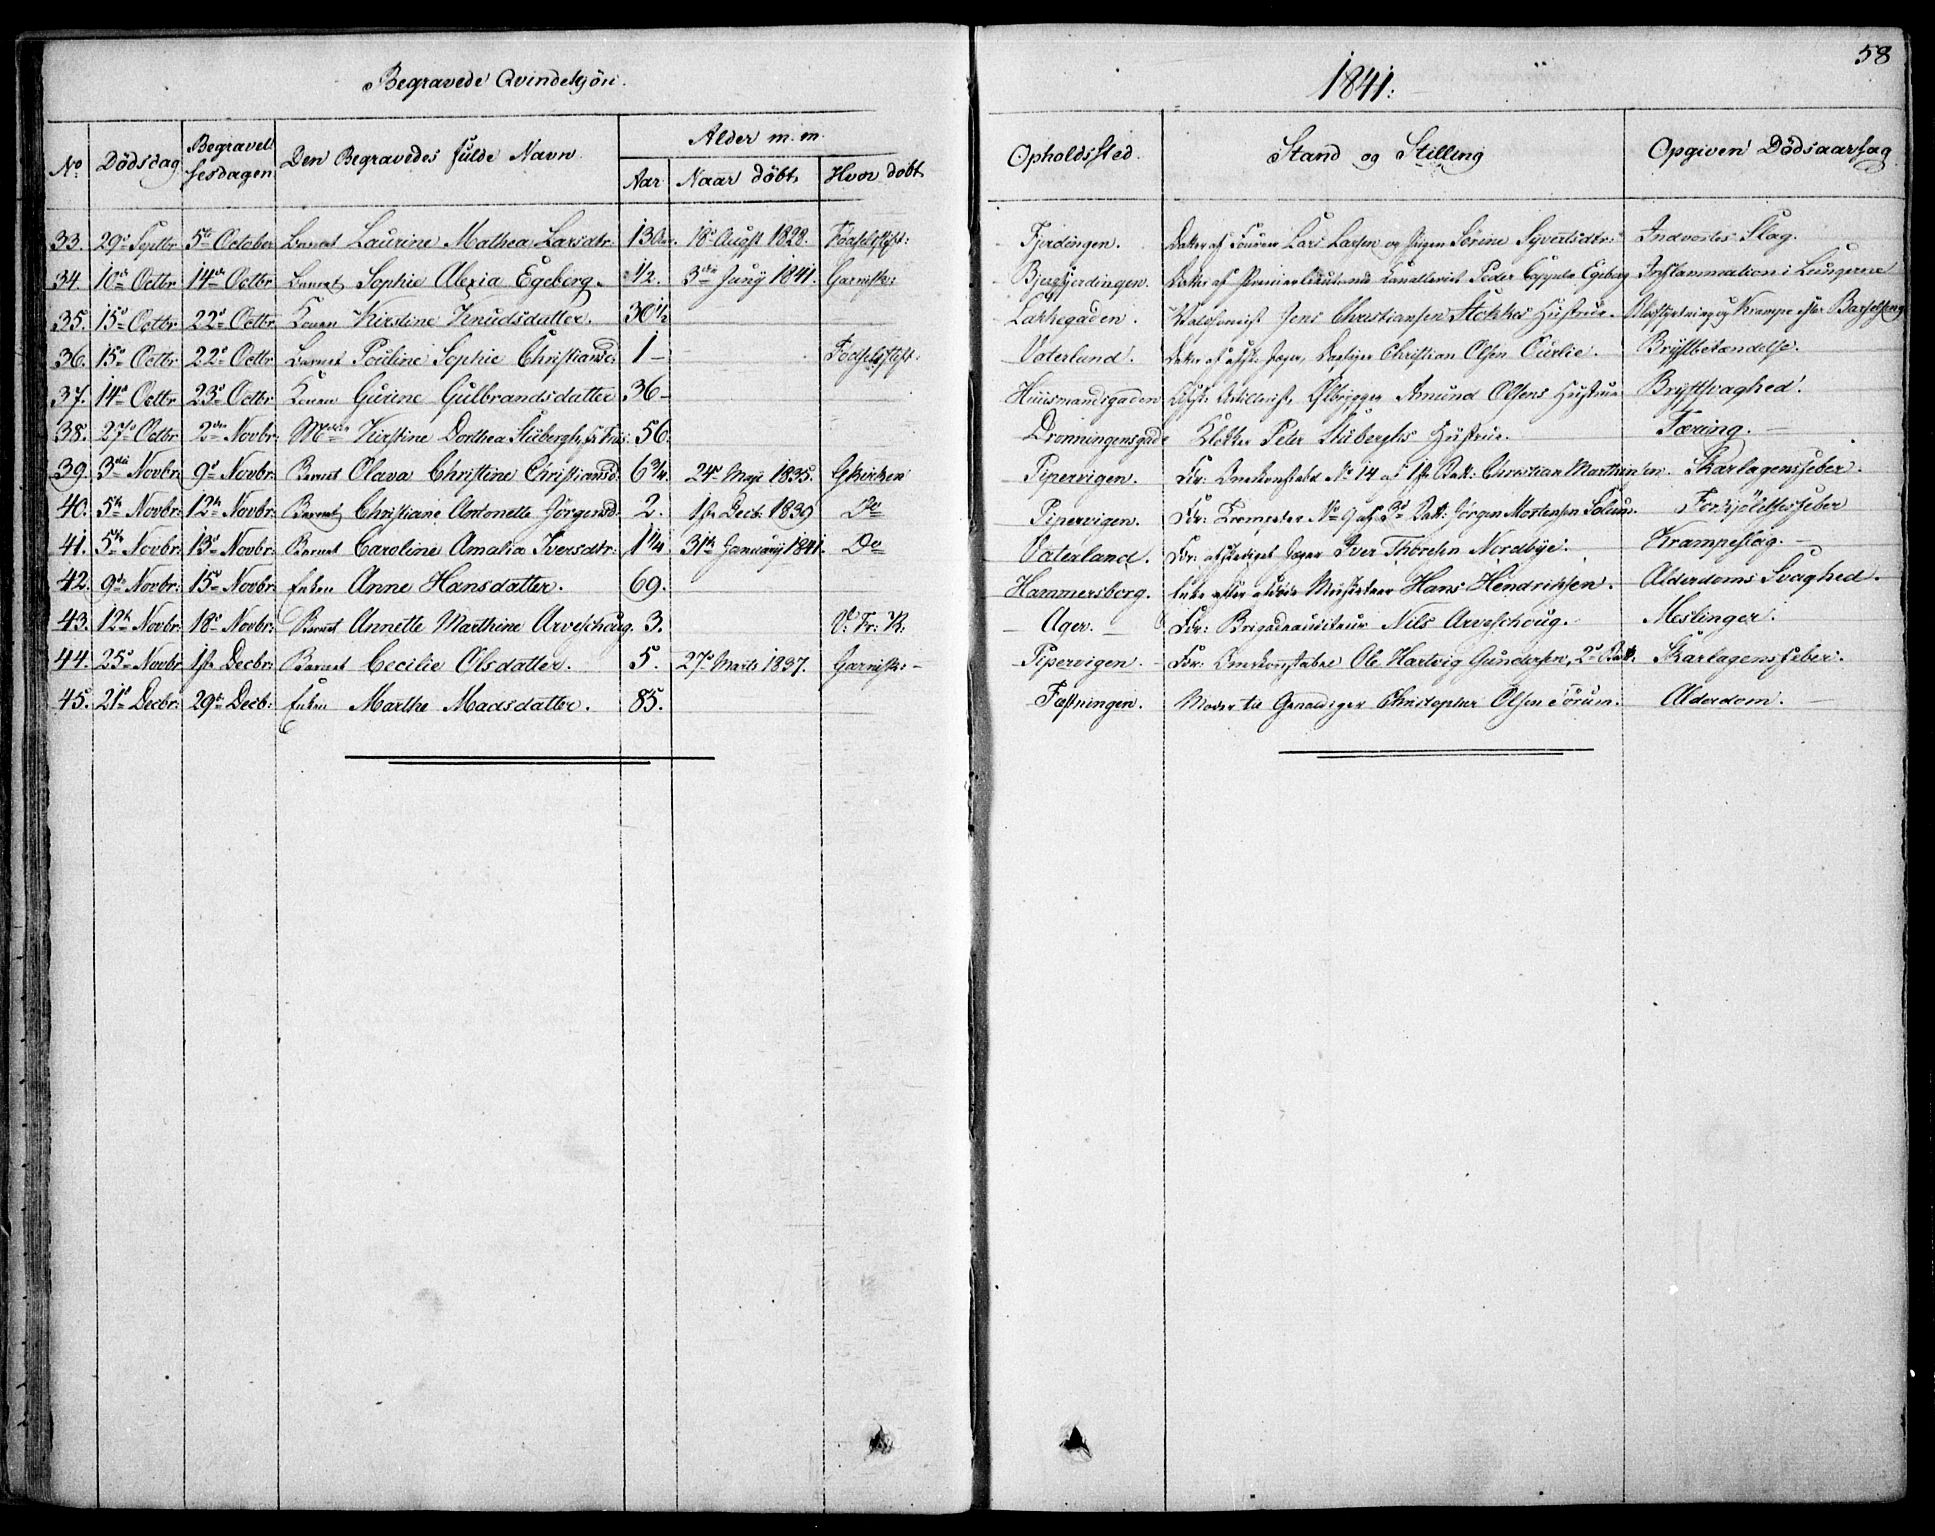 58
Begravede Qvindekjön. 1841.
No Dödsdag Begravel sesdagen Den Begravedes fulde Navn Alder m.m. Opholdssted. Stand og Stilling Opgiven Dödsaarsag
Aar Naar döbt Hvor döbt
33. 29de Septbr 5te October Barnet Laurine Mathea Larsdtr. 13 Aar. 18de August 1828. Fjerdingen. Datter af Lars Larsen og Pigen Sörine Syvertsdtr: Indvortes Slag.
34. 10de Octbr 14de Octbr Barnet Sophie Alexia Egeberg. 1/2. 3die Juny 1841. Garnisk: Bjergfjerdingen. Datter af Premierlieutenant Peder Egeberg Inflammation i Lungerne
35. 15de Octbr 22de Octbr Konen Kirstine Knudsdatter. 30 1/2 Lakkegaden. Jens Christiansen Stokkes Hustrue. og Krampe efter Barselseng
36. 15de Octbr 22de Octbr Barnet Pouline Sophie Christiansd: 1 – Vaterland. Datter af Christian Olsen Brystbetændelse.
37. 14de Octbr 23de Octbr Konen Gurine Gulbrandsdatter 36 – Huusmandsgaden Amund Olsens Hustrue Brystsvaghed.
38. 27de Octbr 2den Novbr: Kirstine Dorthea Stubergh, 56. Dronningensgade Klokker Peter Stuberghs Hustrue. Tæring. –
39. 3die Novbr: 9de Novbr: Barnet Olava Christine Christiansd: 6 3/4. 24de Maji 1835. Gkirken Pipervigen. Fdr: No 14 af 1ste Batt: Christian Marthinsen. Skarlagensfeber.
40. 5te Novbr: 12te Novbr: Barnet Christiane Antonette Jörgensd. 2. 1ste Decb: 1839 Do Pipervigen. Fdr: No 9 af 3de Batt: Jörgen Mortensen Solum. Forkjölelsesfeber
41. 5te Novbr: 13de Novbr: Barnet Caroline Amalia Iversdtr: 1 1/4. 31te January 1841. Do Vaterland. Fdr: afskediget Jæger Iver Thoresen Nordbye. Krampeslag. –
42. 9de Novbr: 15de Novbr: Enken Anne Hansdatter. 69. Hammersborg. Enke efter Musketeer Hans Hendrichsen. Alderdoms Svaghed.
43. 12te Novbr: 18de Novbr: Barnet Annette Marthine Arveschoug. 3. V: Fr: K: – Ager. – Fdr: Brigadeauditeur Nils Arveschoug. – Meslinger.
44. 25de Novbr 1ste Decbr: Barnet Cecilie Olsdatter. 5. 27de Marts 1837. Garnisk: – Pipervigen. – Fdr: Ole Hartvig Gundersen, 2de Batt. Skarlagensfeber.
45. 21de Decbr: 29de Decb: Enken Marthe Madsdatter. 85. Fæstningen. Moder til Christopher Olsen Sörum. Alderdom. –